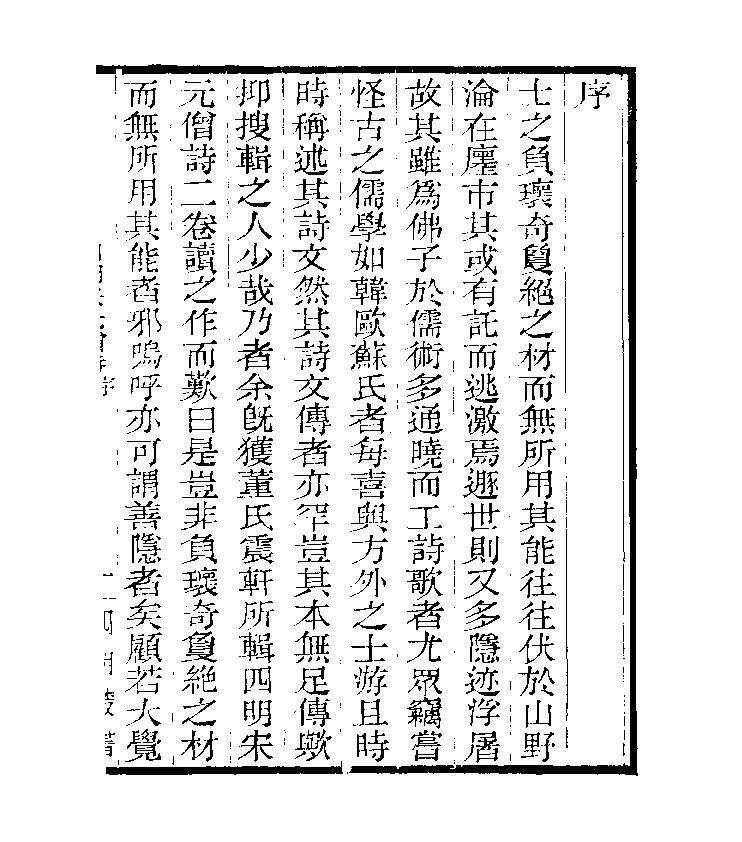 序
士之負瓌奇敻絕之材而無所用其能往往伏於山野
淪在廛市其或有託而逃激焉遯世則又多隱迹浮屠
故其雖爲佛子於儒術多通曉而工詩歌者尤眾竊嘗
怪古之儒學如韓歐蘇氏者每喜與方外之士游且時
時稱述其詩文然其詩文傳者亦罕豈其本無足傳歟
抑搜輯之人少哉乃者余旣獲董氏震軒所輯四明宋
元僧詩二卷讀之作而歎曰是豈非負瓌奇敻絕之材
而無所用其能者邪嗚呼亦可謂善隱者矣顧若大覺
序 一 四明叢書